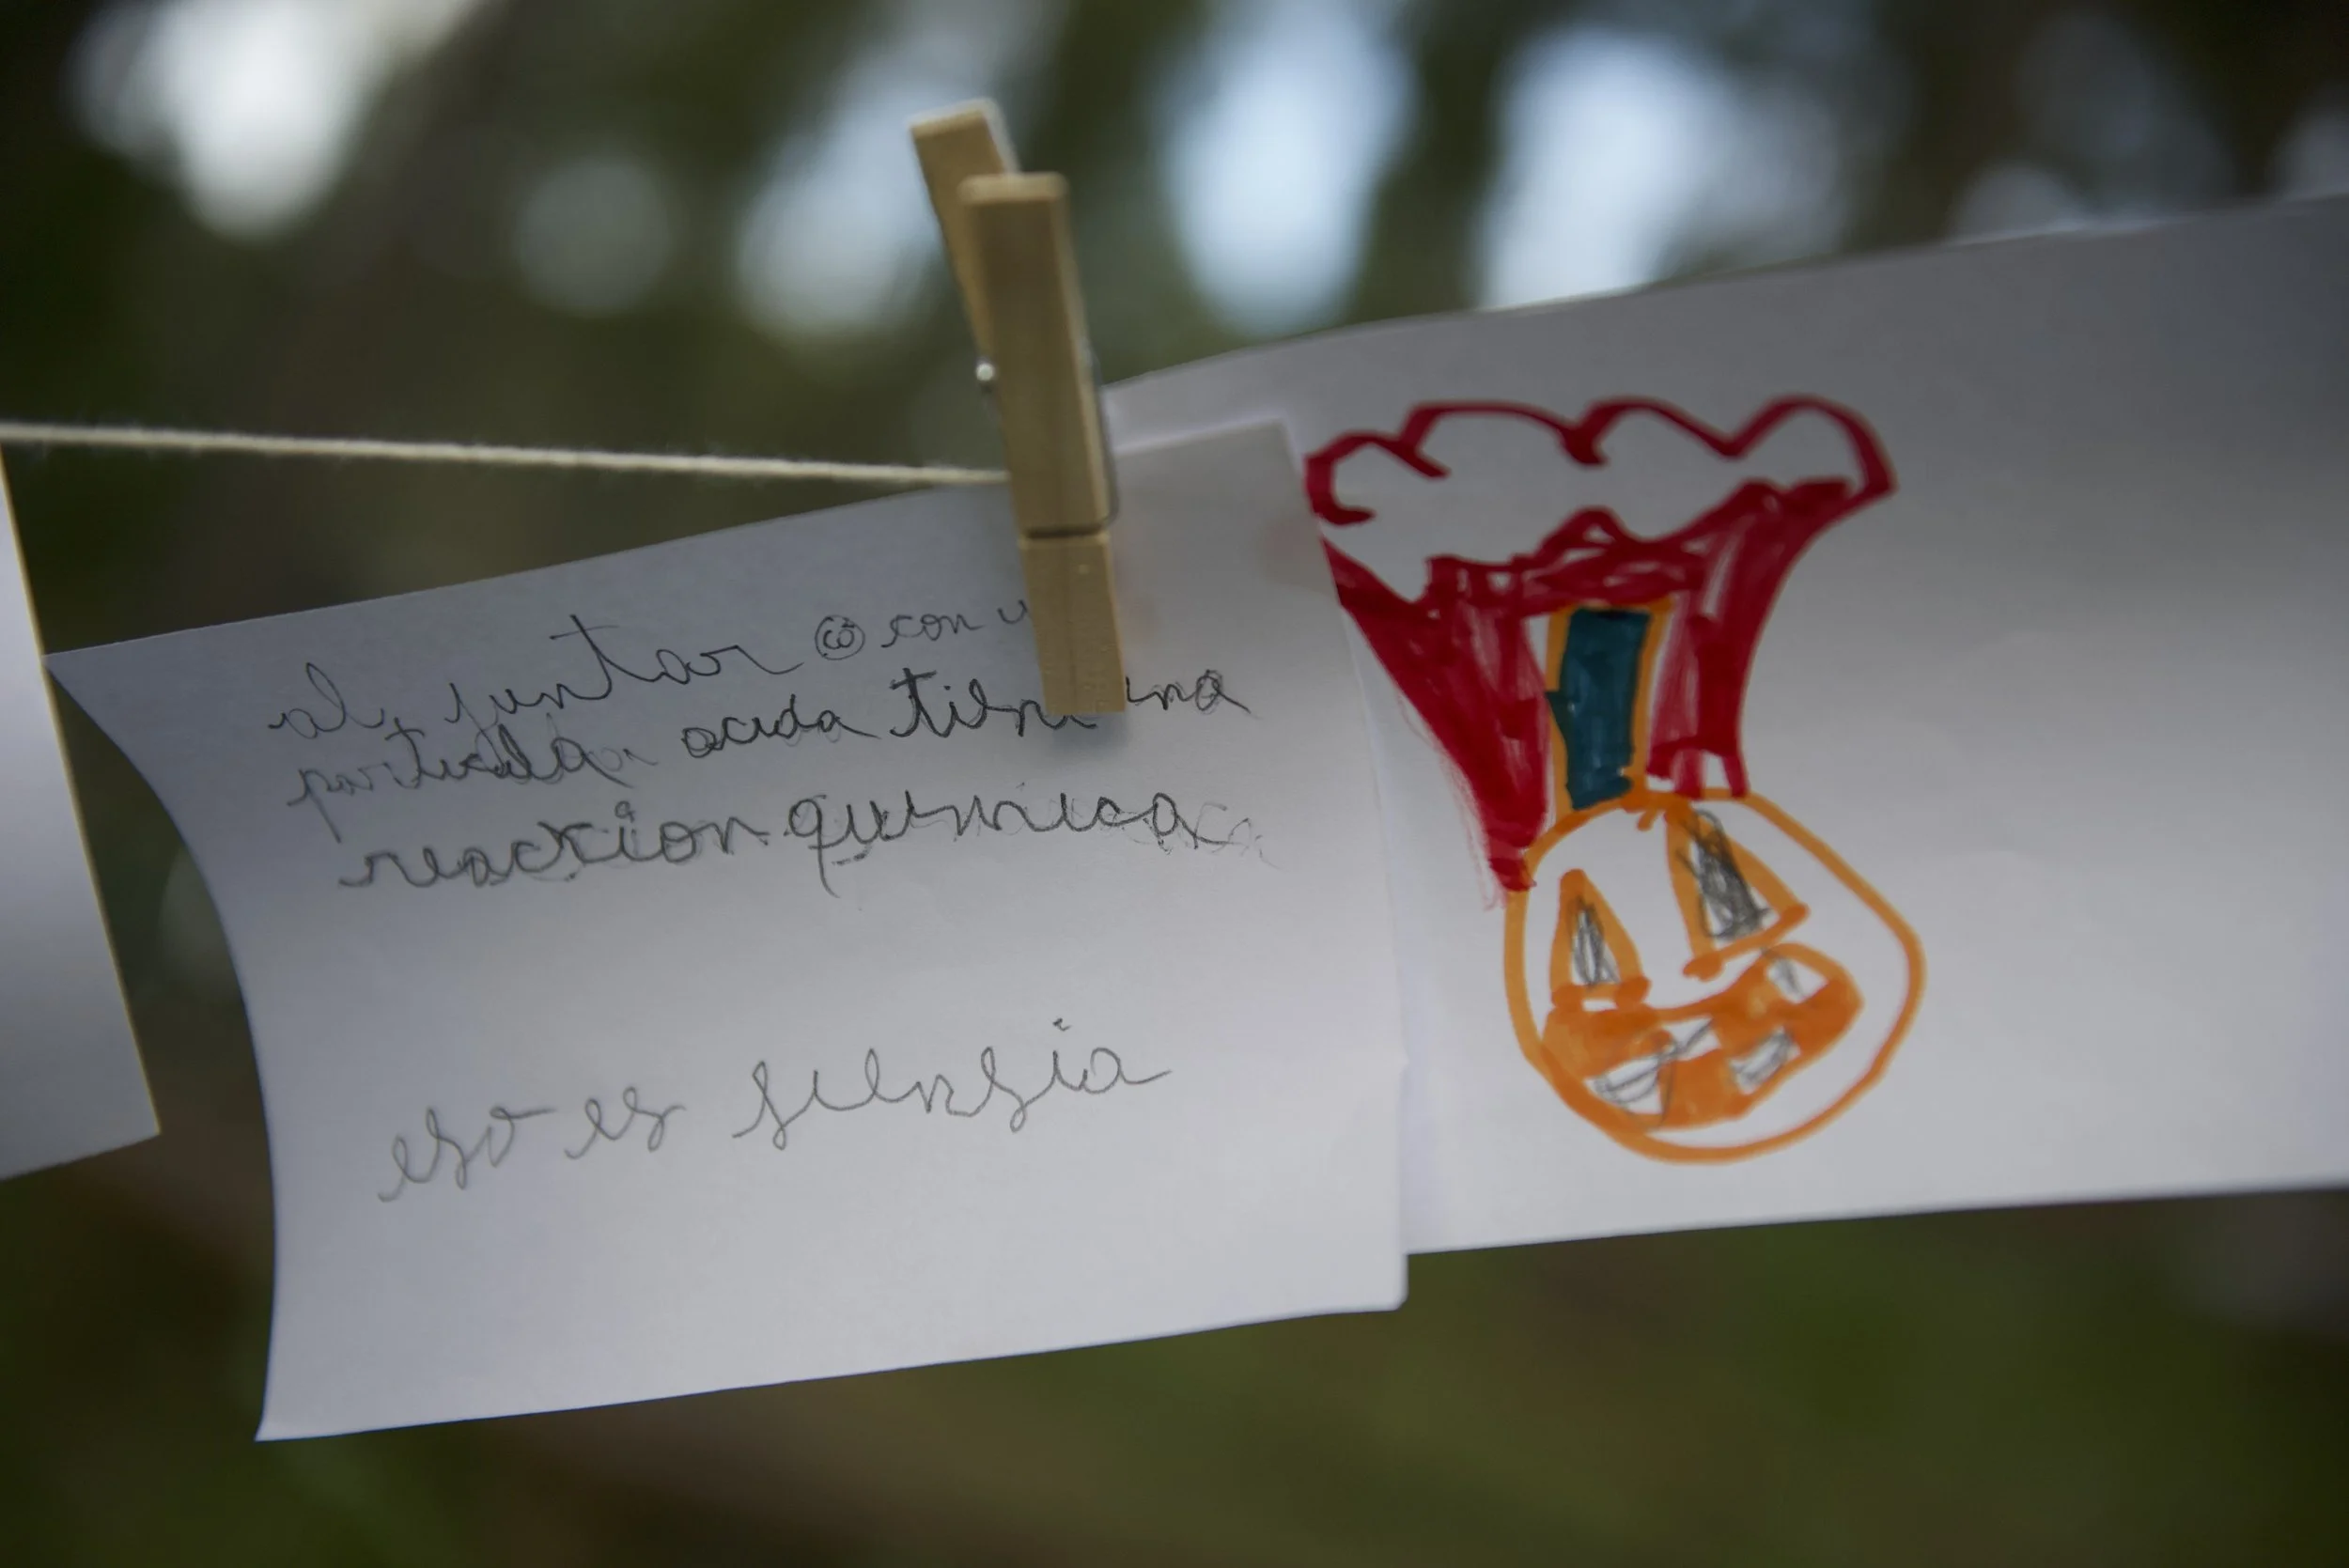 al juntar co con u
particula acida tiene una
reaccion quimica
eso es siensia